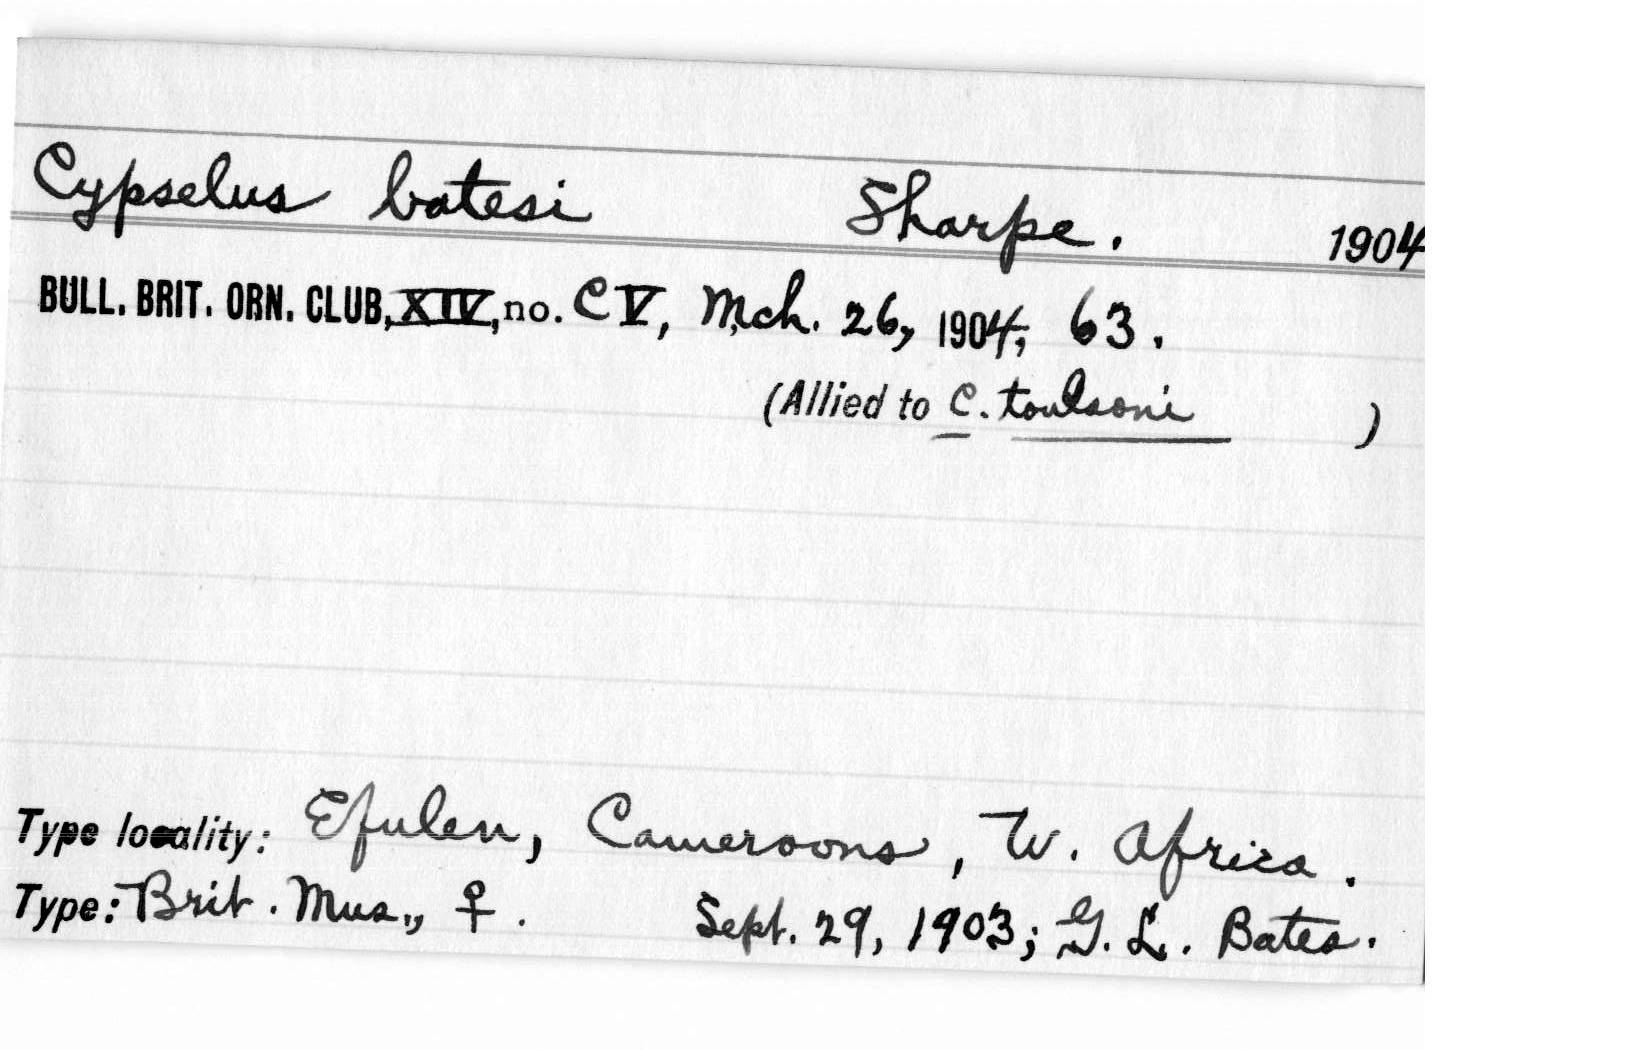 Cypselus batesi Sharpe. 1904
BULL. BRIT. ORN. CLUB, XIV, no. CV, Mch. 26, 1904; 63.
(Allied to C. toulsoni )
Type locality: Efulen, Cameroons, W. Africa.
Type: Brit. Mus., ♀. Sept. 29, 1903; G. L. Bates.